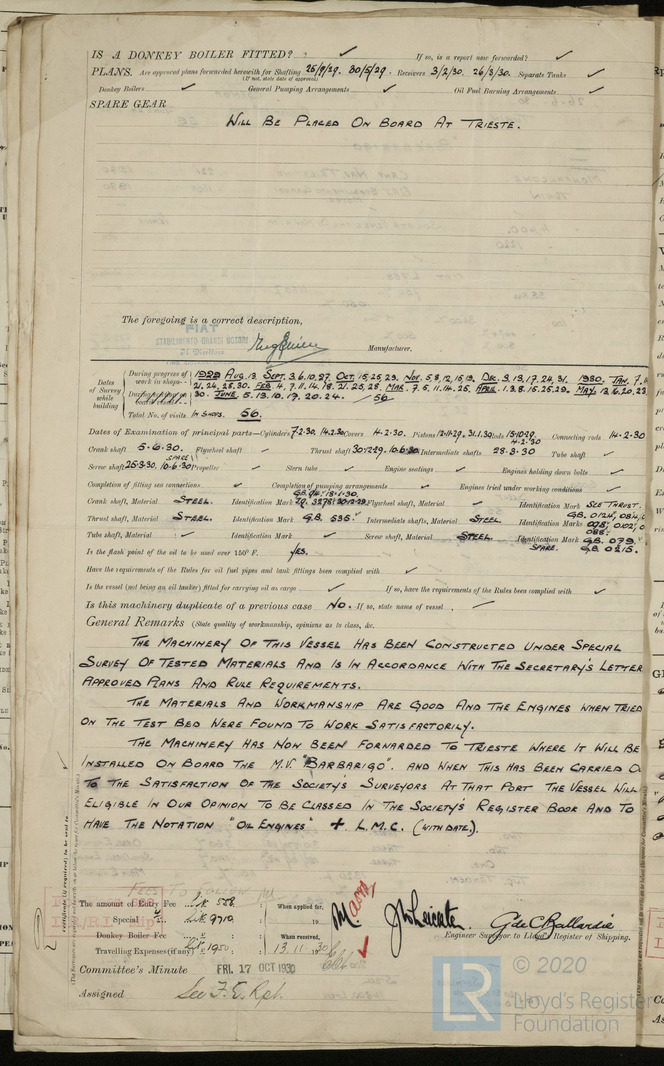 IS A DONKEY BOILER FITTED? ✓ If so, is a report now forwarded? ✓
PLANS. Are approved plans forwarded herewith for Shafting 25/9/29. 30/5/29. Receivers 3/2/30. 26/3/30. Separate Tanks ✓
(If not, state date of approval)
Donkey Boilers ✓ General Pumping Arrangements ✓ Oil Fuel Burning Arrangements ✓
SPARE GEAR
WILL BE PLACED ON BOARD AT TRIESTE.
The foregoing is a correct description,
FIAT
STABILIMENTO GRANDI MOTORI
Manufacturer.
Dates of Survey while building
During progress of work in shops - - 1929 AUG. 13 SEPT. 3.6.10.27. OCT. 15.25.29. NOV. 5.8.12.15.19. DEC. 3.13.17.24.31. 1930. JAN. 7.
21.24.28.30. FEB. 4.7.11.14.18.21.25.28. MAR. 7. 11.14.25. APRIL. 1.3.8.15.25.29. MAY. 13.16.20.23
30. JUNE. 5.13.10.17.20.24. / 56
Total No. of visits IN SHOPS. 56.
Dates of Examination of principal parts—Cylinders 7.2.30. 14.2.30 Covers 14.2.30. Pistons 12.11.29. 31.1.30 Rods 15.10.29. 4.2.30 Connecting rods 14.2.30
Crank shaft 5.6.30. Flywheel shaft ✓ Thrust shaft 30.12.29. 10.6.30 Intermediate shafts 28.3.30 Tube shaft ✓
Screw shaft 25.3.30. SPARE 10.6.30 Propeller ✓ Stern tube ✓ Engine seatings ✓ Engines holding down bolts ✓
Completion of fitting sea connections ✓ Completion of pumping arrangements ✓ Engines tried under working conditions ✓
Crank shaft, Material STEEL. Identification Mark Flywheel shaft, Material ✓ Identification Mark SEE THRUST.
Thrust shaft, Material STEEL. Identification Mark G.B. 535. Intermediate shafts, Material STEEL. Identification Marks
Tube shaft, Material ✓ Identification Mark ✓ Screw shaft, Material STEEL. Identification Mark G.B. 079.
SPARE. G.B. 0215.
Is the flash point of the oil to be used over 150° F. YES.
Have the requirements of the Rules for oil fuel pipes and tank fittings been complied with ✓
Is the vessel (not being an oil tanker) fitted for carrying oil as cargo ✓ If so, have the requirements of the Rules been complied with ✓
Is this machinery duplicate of a previous case NO. If so, state name of vessel ✓
General Remarks (State quality of workmanship, opinions as to class, &c.
THE MACHINERY OF THIS VESSEL HAS BEEN CONSTRUCTED UNDER SPECIAL
SURVEY OF TESTED MATERIALS AND IS IN ACCORDANCE WITH THE SECRETARY'S LETTER
APPROVED PLANS AND RULE REQUIREMENTS.
THE MATERIALS AND WORKMANSHIP ARE GOOD AND THE ENGINES WHEN TRIED
ON THE TEST BED WERE FOUND TO WORK SATISFACTORILY.
THE MACHINERY HAS NOW BEEN FORWARDED TO TRIESTE WHERE IT WILL BE
INSTALLED ON BOARD THE M.V. "BARBARIGO". AND WHEN THIS HAS BEEN CARRIED
TO THE SATISFACTION OF THE SOCIETY'S SURVEYORS AT THAT PORT THE VESSEL WILL
ELIGIBLE IN OUR OPINION TO BE CLASSED IN THE SOCIETY'S REGISTER BOOK AND TO
HAVE THE NOTATION "OIL ENGINES" + L.M.C. (WITH DATE).
The amount of Entry Fee Lit. 558 When applied for,
Special Lit. 9710 19
Donkey Boiler Fee When received,
Travelling Expenses (if any) Lit. 1950 13.11.30
Engineer Surveyor to Lloyd's Register of Shipping.
Committee's Minute FRI. 17 OCT 1930
Assigned See F.E. Rpt.
© 2020
Lloyd's Register
Foundation
LR